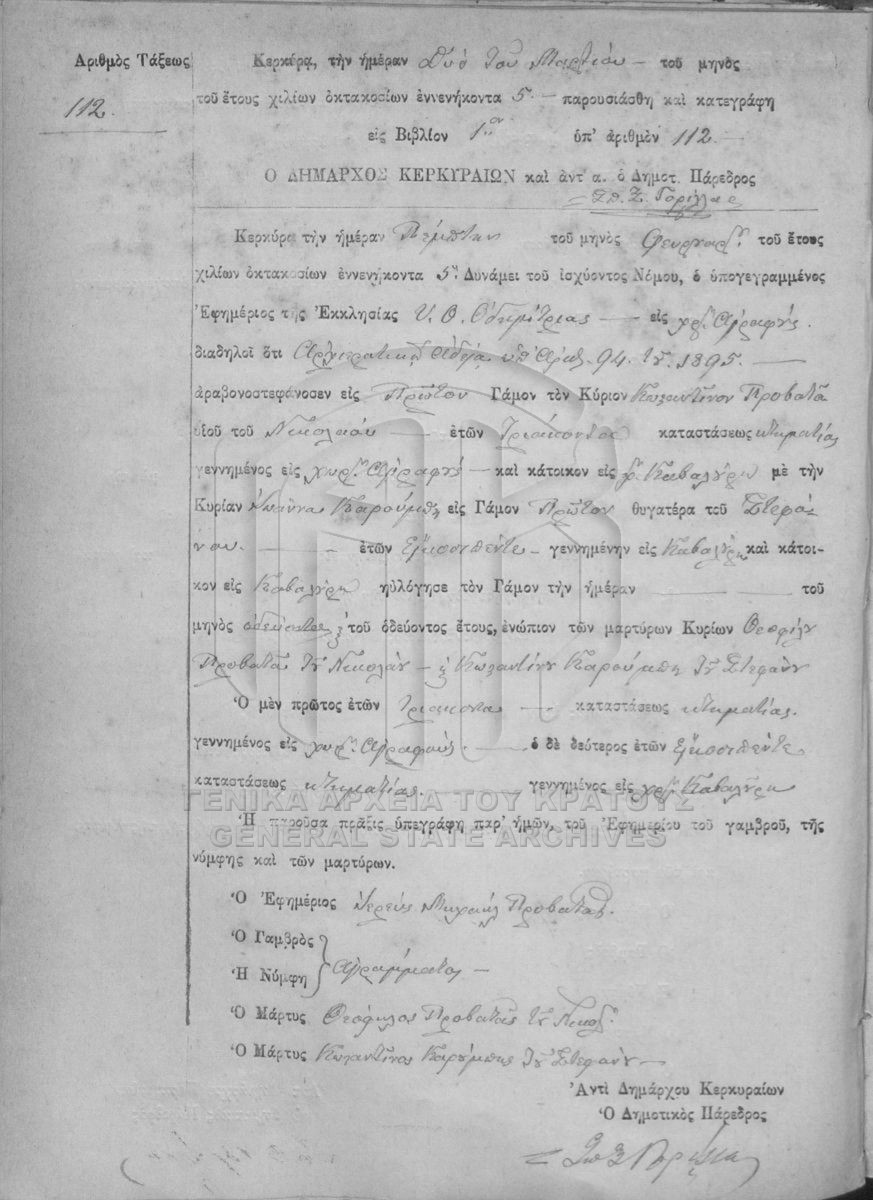 Ἀριθμὸς Τάξεως
112.
Κερκύρα, τὴν ἡμέραν δύο τοῦ Μαρτίου — τοῦ μηνὸς
τοῦ ἔτους χιλίων ὀκτακοσίων ἐννενήκοντα 5 — παρουσιάσθη καὶ κατεγράφη
εἰς Βιβλίον 1ον ὑπ' ἀριθμὸν 112 —
Ο ΔΗΜΑΡΧΟΣ ΚΕΡΚΥΡΑΙΩΝ καὶ ἀντ' α. ὁ Δημοτ. Πάρεδρος
Σπ. Σ. Γορίλλας
Κερκύρα τὴν ἡμέραν Πέμπτην τοῦ μηνὸς Φευρουαρ. τοῦ ἔτους
χιλίων ὀκτακοσίων ἐννενήκοντα 5 Δυνάμει τοῦ ἰσχύοντος Νόμου, ὁ ὑπογεγραμμένος
Ἐφημέριος τῆς Ἐκκλησίας Υ. Θ. Ὁδηγήτριας — εἰς χωρ. Ἀγραφούς.
διαδηλοῖ ὅτι Ἀρχιερατικῇ ἀδείᾳ ὑπ' ἀριθ. 94. τοῦ 1895. —
ἀραβονοστεφάνοσεν εἰς Πρῶτον Γάμον τὸν Κύριον Κωνσταντῖνον Προβατᾶ
υἱοῦ τοῦ Νικολάου — ἐτῶν τριάκοντα καταστάσεως κτηματίας
γεννημένος εἰς χωρ. Ἀγραφούς — καὶ κάτοικον εἰς χ. Καβαλύρη μὲ τὴν
Κυρίαν Ἰωάννα Καρούμπη εἰς Γάμον Πρῶτον θυγατέρα τοῦ Στεφά-
νου. — ἐτῶν Εἰκοσιπέντε — γεννημένην εἰς Καβαλύρη καὶ κάτοι-
κον εἰς Καβαλύρη ηὐλόγησε τὸν Γάμον τὴν ἡμέραν — τοῦ
μηνὸς τοῦ ὁδεύοντος ἔτους, ἐνώπιον τῶν μαρτύρων Κυρίων Θεοφίλου
Προβατᾶ τοῦ Νικολάου — κ Κωνσταντίνου Καρούμπη τοῦ Στεφάνου
Ὁ μὲν πρῶτος ἐτῶν τριάκοντα — καταστάσεως κτηματίας.
γεννημένος εἰς χωρ. Ἀγραφούς. — ὁ δὲ δεύτερος ἐτῶν εἰκοσιπέντε
καταστάσεως κτηματίας. — γεννημένος εἰς χωρ. Καβαλύρη
ΓΕΝΙΚΑ ΑΡΧΕΙΑ ΤΟΥ ΚΡΑΤΟΥΣ
GENERAL STATE ARCHIVES
Ἡ παροῦσα πρᾶξις ὑπεγράφη παρ' ἡμῶν, τοῦ Ἐφημερίου τοῦ γαμβροῦ, τῆς
νύμφης καὶ τῶν μαρτύρων.
Ὁ Ἐφημέριος Ἱερεὺς Μιχαὴλ Προβατᾶς.
Ὁ Γαμβρὸς
Ἡ Νύμφη Ἀγράμματοι —
Ὁ Μάρτυς Θεόφιλος Προβατᾶς τοῦ Νικολ.
Ὁ Μάρτυς Κωνσταντῖνος Καρούμπης τοῦ Στεφάνου —
Ἀντὶ Δημάρχου Κερκυραίων
Ὁ Δημοτικὸς Πάρεδρος
Σπ Σ Γορίλλας